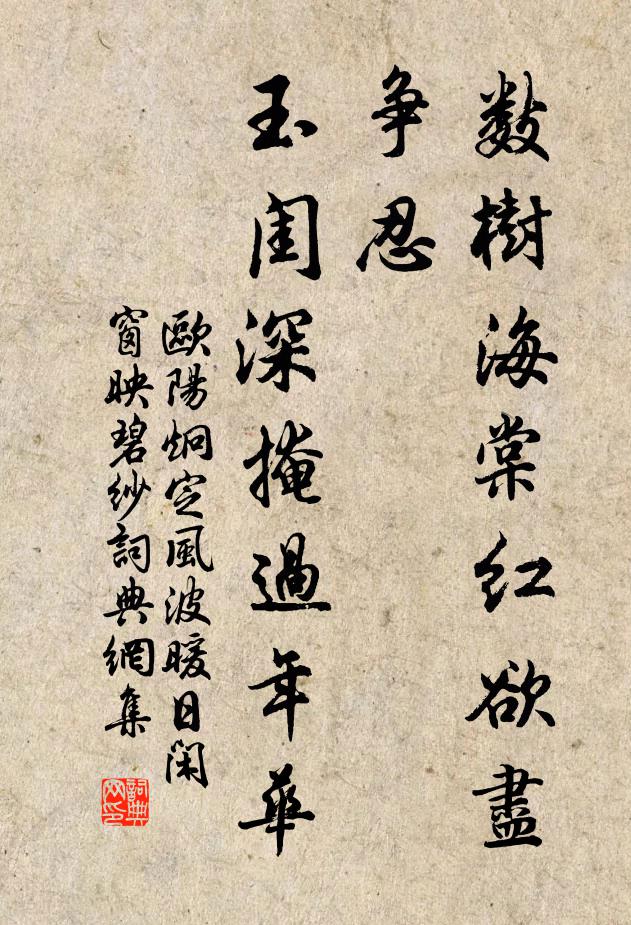 数樹海棠红欲盡
争忍
玉閨深掩過年華
歐陽炯定風波暖日閑
窗映碧紗詞典網集
詞典网印